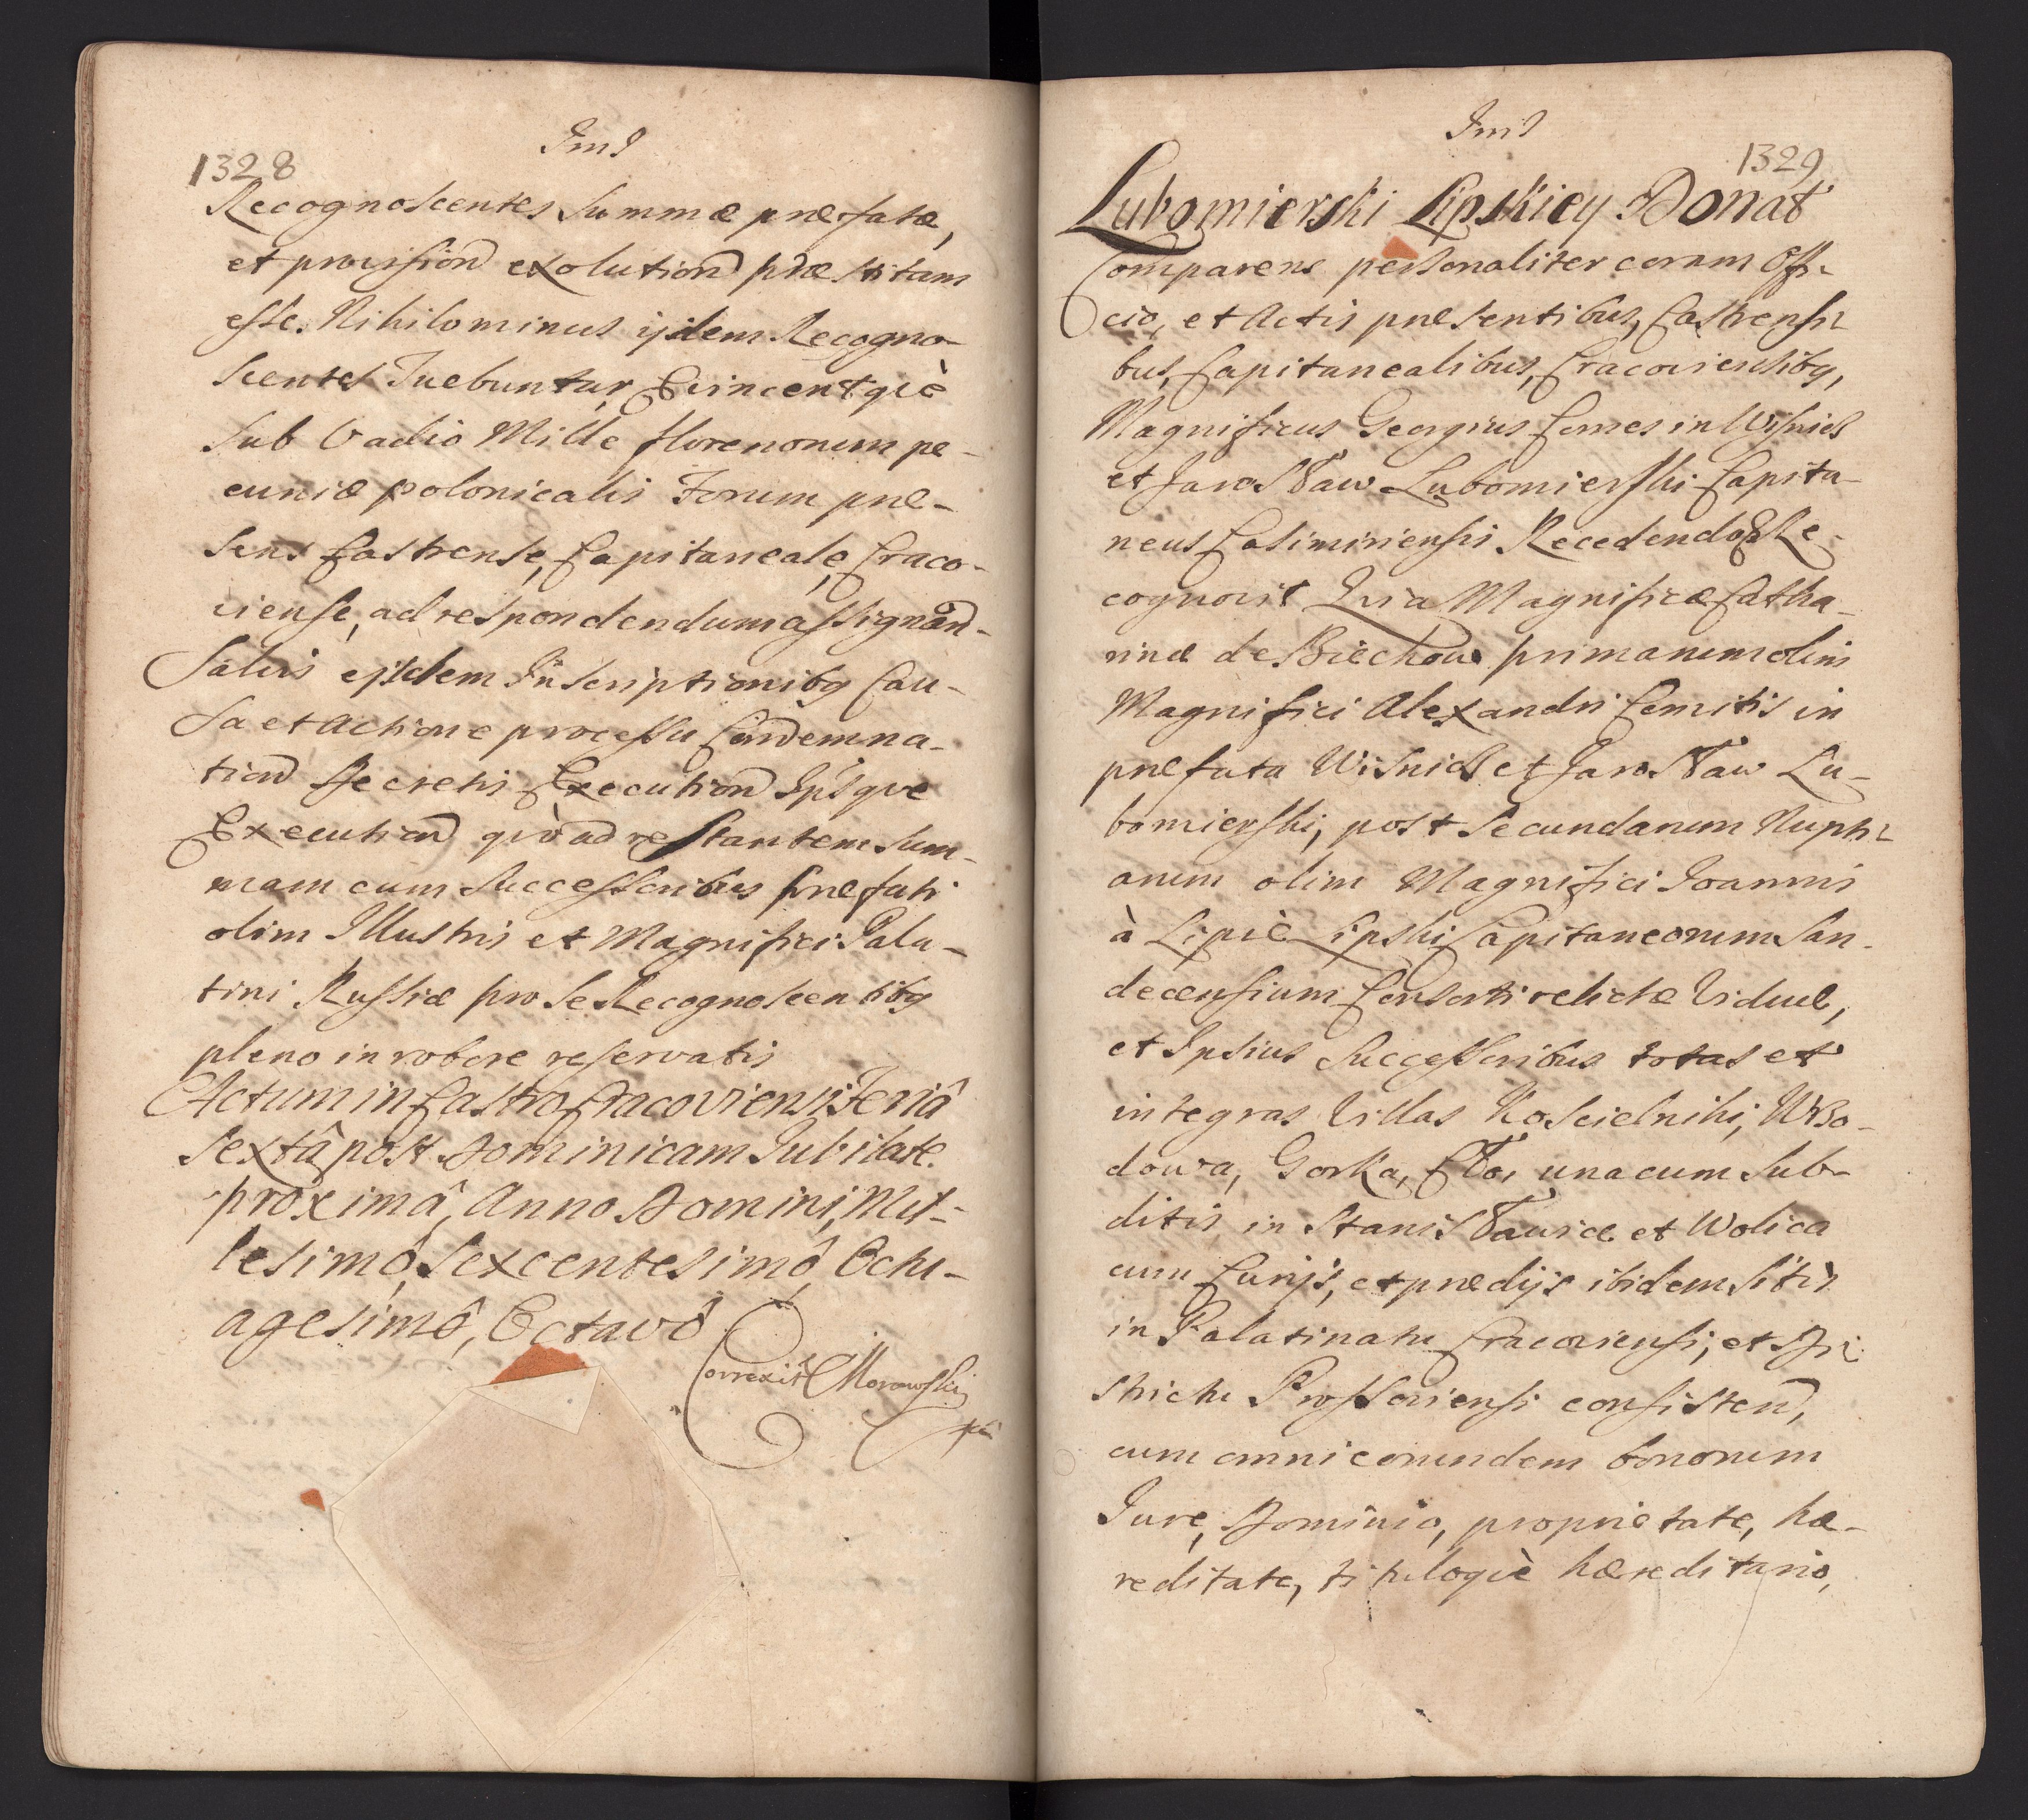 1328
Recognoscentes Summæ præfatæ,
et provision exolution præstitam
esse. Nihilominus ijdem Recogno-
scentes Tuebuntur, Evincentqꝫ
Sub Vadio Mille florenorum pe-
cuniæ polonicalis Forum præ-
sens Castrense, Capitaneale, Craco-
viense, ad respondendum assignan̄-
Salvis ejsdem Inscriptionibꝫ Cau-
sa et Actione processu Condemna-
tion Decretis Execution Ipsqve
Execution qvoad restantem Sum-
mam cum Successoribus præfati
olim Illustris et Magnifici Pala-
tini Russiæ pro se Recognoscentibꝫ
pleno in robore reservatis
Actum in Castro Cracoviensi Feriâ
Sextâ post Dominicam Jubilate
proximâ, Anno Domini, Mil-
lesimô, Sexcentesimô, Octu-
agesimô, Octavô
Correxit Morowski
1329
Lubomierski Lipskiey Donat
Comparens personaliter coram Offi-
cio, et Actis præsentibus, Castrensi-
bus, Capitanealibus, Cracoviensibꝫ,
Magnificus Georgius Comes in Wisnicz
et Jarosław Lubomierski Capita-
neus Casimiriensis Recedendo &c Re-
cognovit Qvia Magnificæ Catha-
rinæ de Biechow primarum olim
Magnifici Alexandri Comitis in
præfata Wisnicz et Jarosław Lu-
bomierski, post Secundarum Nupti-
arum olim Magnifici Joannis
à Lipiè Lipski Capitaneorum San-
decensium Consorti relictæ Viduæ,
et Ipsius Successoribus totas et
integras Villas Koscielniki, Wło-
dowa, Gorka, Cło, una cum Sub-
ditis in Stanisławice et Wolica
cum Curijs, et prædijs ibidem Sitis
in Palatinatu Cracoviensi, et Di-
strictu Prossoviensi consisten̄,
cum omni eorundem bonorum
Jure, Dominio, proprietate, hæ-
reditate, tituloqꝫè hæreditario,